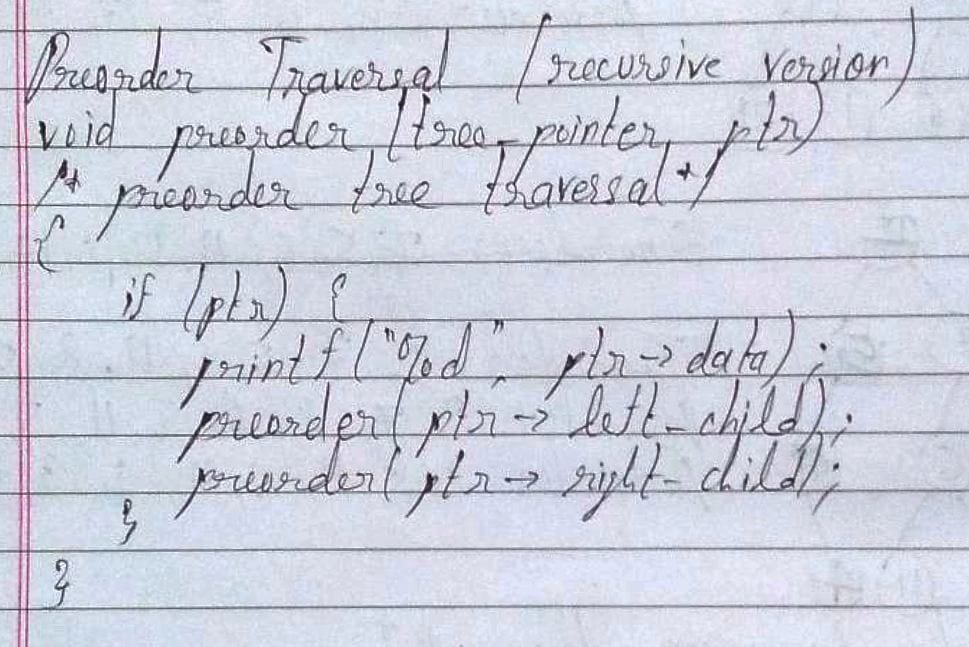 Preorder Traversal (recursive version)
void preorder (tree_pointer ptr)
/* preorder tree traversal */
{
if (ptr) {
printf ("%d", ptr->data);
preorder(ptr->left_child);
preorder(ptr->right_child);
}
}